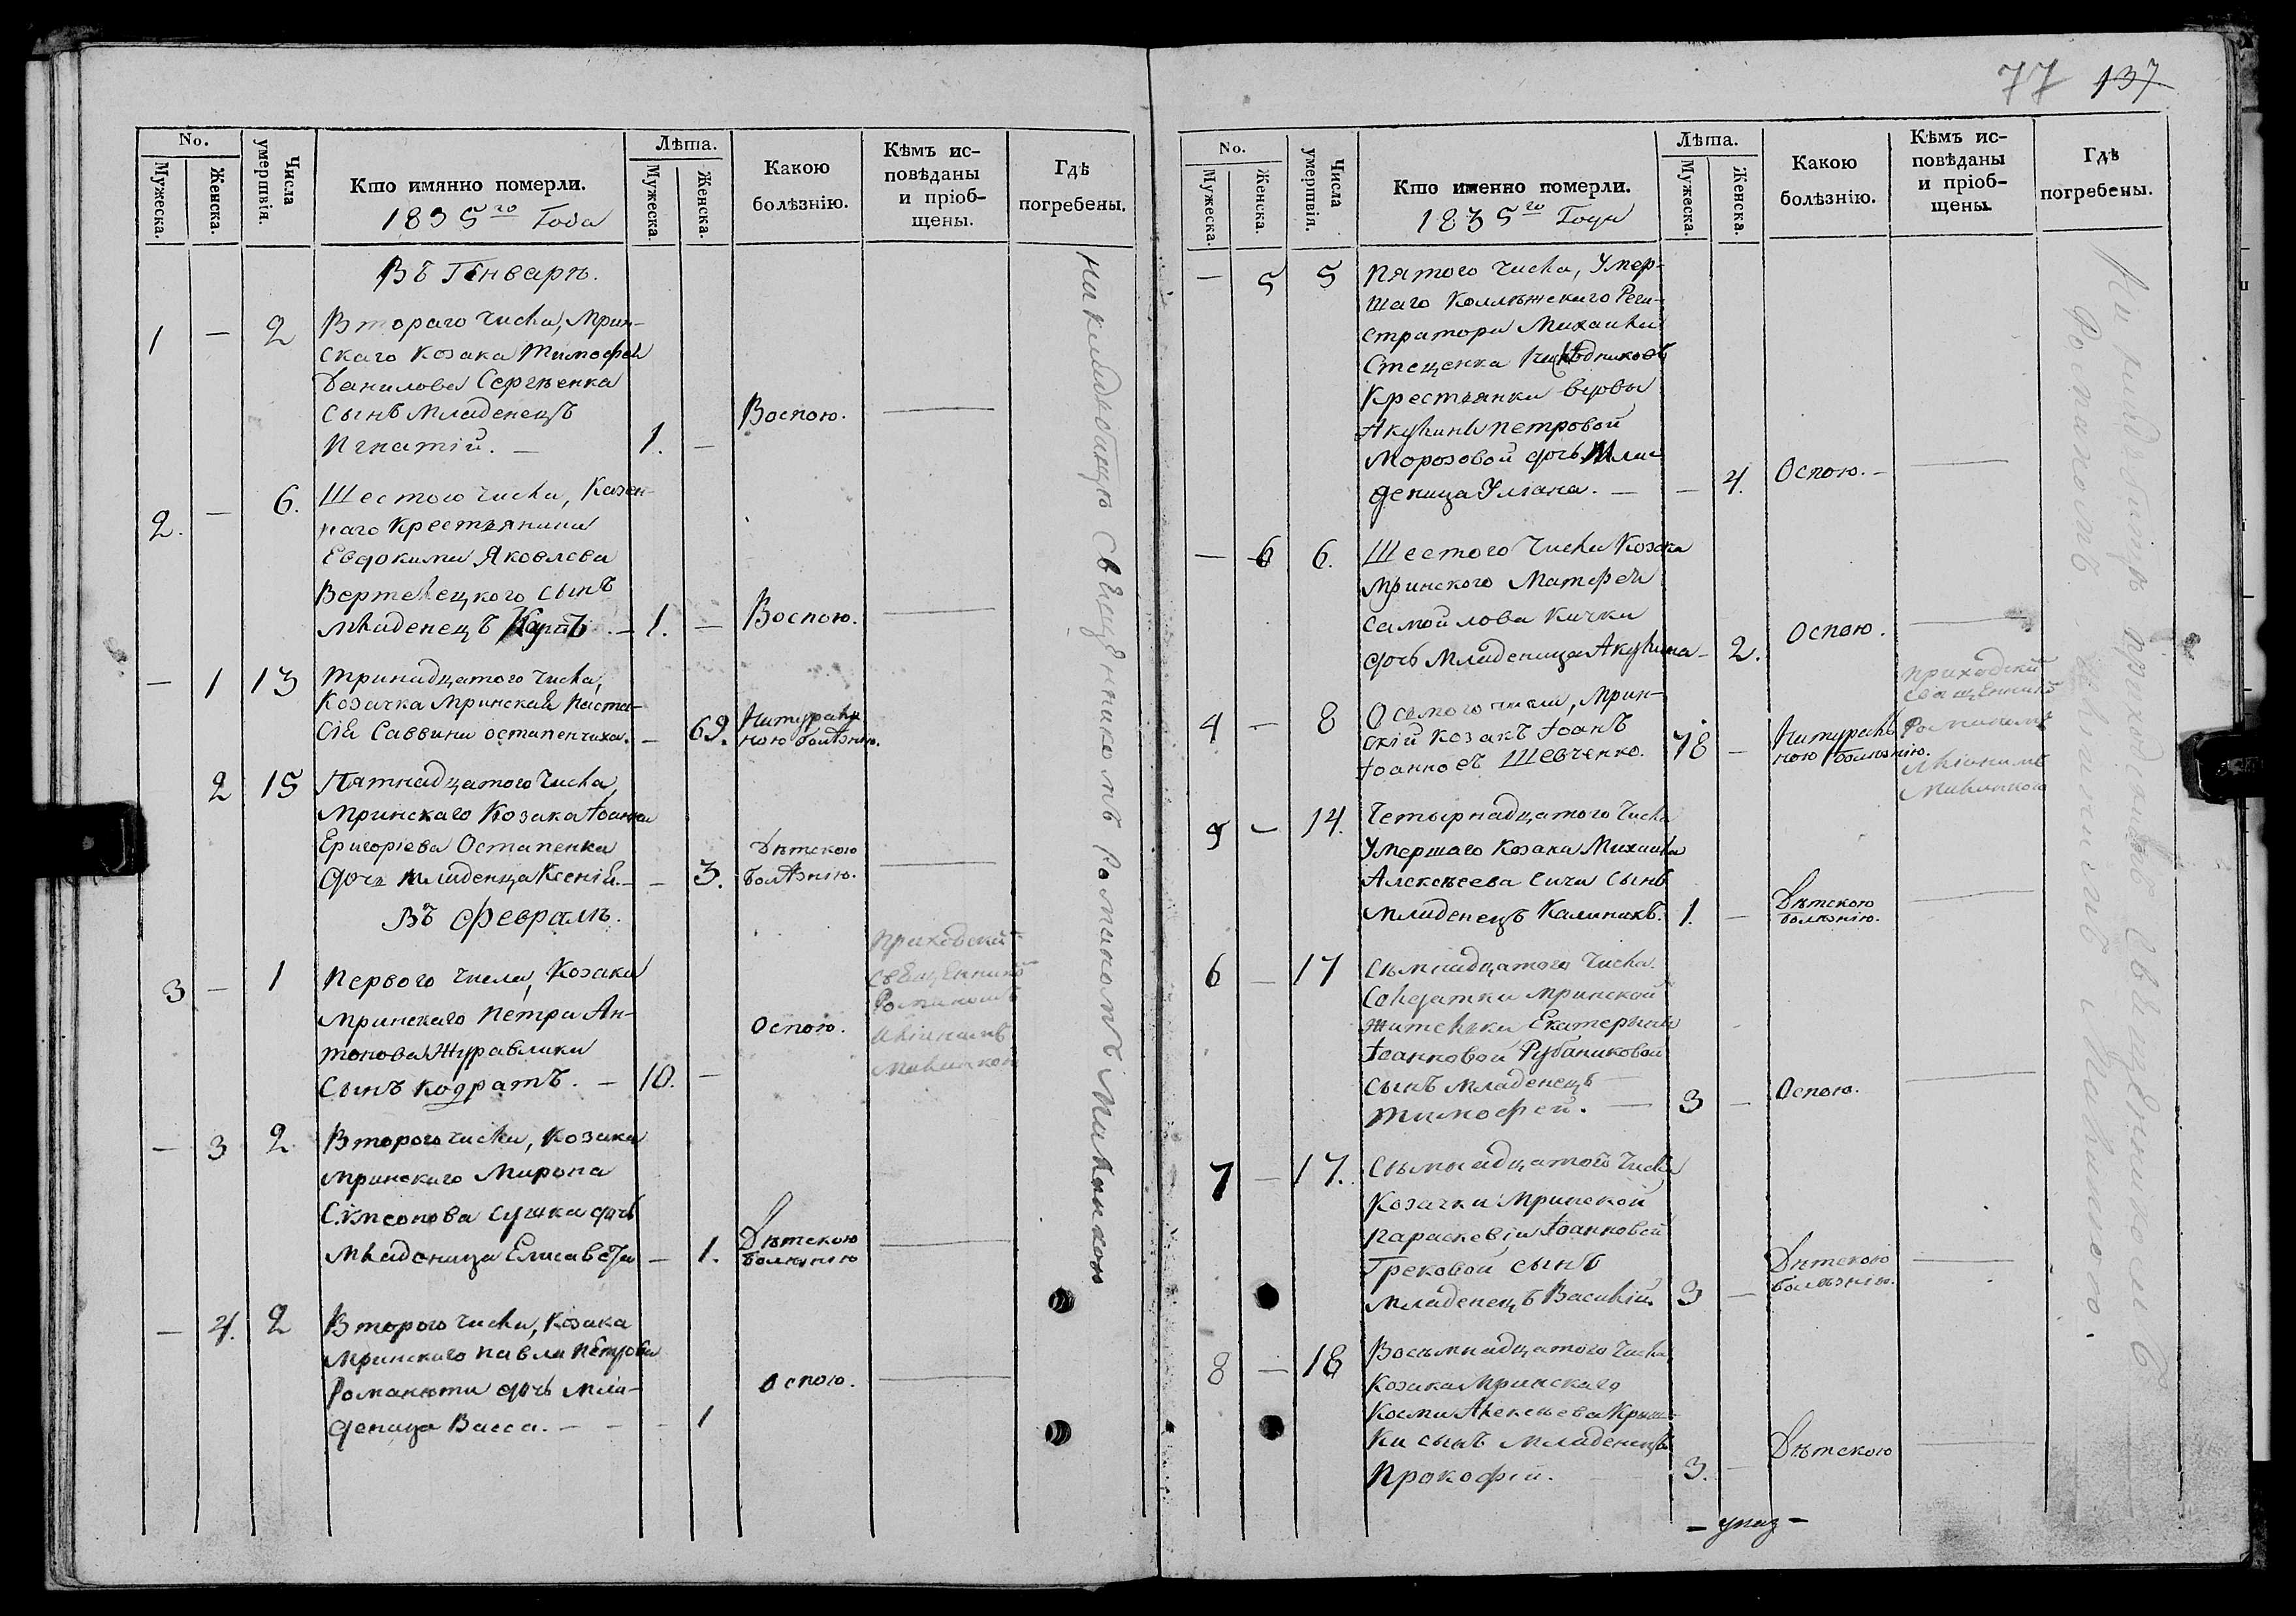 77 137
No.
Мужеска.
Женска.
Числа умертвія.
Кто имянно померли.
1835го Года
Лѣта.
Мужеска.
Женска.
Какою болѣзнію.
Кѣмъ ис-
повѣданы
и пріоб-
щены.
Гдѣ
погребены.
Въ Генварѣ.
1 — 2 Втораго числа, Мрин-
скаго козака Тимофея
Данилова Сергѣенка
сынъ младенецъ
Игнатій. — 1. — Воспою.
2. — 6. Шестого числа, Казен-
наго крестьянина
Евдокима Яковлева
Вертелецкого сынъ
младенецъ — 1. — Воспою.
— 1 13 Тринадцатого числа,
Козачка Мринская Наста-
сія Саввина Остапенчиха. — 69. Натураль-
ною болѣзнію.
2 15 Пятнадцатого числа,
Мринскаго Козака Іоанна
Григоріева Остапенка
дочь младенца Ксенія. — 3. Дѣтскою
болѣзнію.
Въ Февралѣ.
3 — 1 Первого числа, Козака
Мринскаго Петра Ан-
тонова Журавлика
сынъ Кодратъ. — 10. — Оспою.
Приходским
священником
Романомъ
Маналкою
— 3 2 Второго числа, Козака
Мринскаго Мирона
Симеонова Сушка дочь
младеница Елисавета — 1. Дѣтскою
болѣзнію
— 4. 2 Второго числа, Козака
Мринскаго Павла Петрова
Романюти дочь мла-
деница Васса. — — — 1 Оспою.
На кладбищѣ священникомъ Романомъ
No.
Мужеска.
Женска.
Числа умертвія.
Кто именно померли.
1835го Года
Лѣта.
Мужеска.
Женска.
Какою болѣзнію.
Кѣмъ ис-
повѣданы
и пріоб-
щены.
Гдѣ
погребены.
— 5 5 Пятого числа, Умер-
шаго Коллежскаго Реги-
стратора Михаила
Стеценка
Крестьянки вдовы
Акулины Петровой
Морозовой дочь мла-
деница Уляна. — — 4. Оспою. —
— 6 6. Шестого числа Козака
Мринского Матфея
Самойлова Кички
дочь младеница Акулина — 2. Оспою.
4 — 8 Осьмого числа, Мрин-
скій козакъ Іоанъ
Іоанновъ Шевченко. 78 — Натураль-
ною болѣзнію.
Приходскій
священникъ
Романомъ
5 — 14. Четырнадцатого числа
Умершаго Козака Михаила
Алексѣева Сича сынъ
младенецъ Калиникъ. 1. — Дѣтскою
болѣзнію.
6 — 17 Сѣмнадцатого числа.
Солдатки Мринской
жительки Екатерины
Іоанновой Рубаниковой
сынъ младенецъ
Тимофей. — 3 — Оспою.
7 — 17. Сѣмнадцатого числа
Козачки Мринской
Параскевіи Іоанновой
Грековой сынъ
младенецъ Василій 3 — Дѣтскою
болѣзнію.
8 — 18 Восемнадцатого числа
Козака Мринскаго
Косми Алексѣева
сынъ младенецъ
Прокофій. 3. — Дѣтскою
На кладбищѣ приходскимъ священникомъ
Романомъ